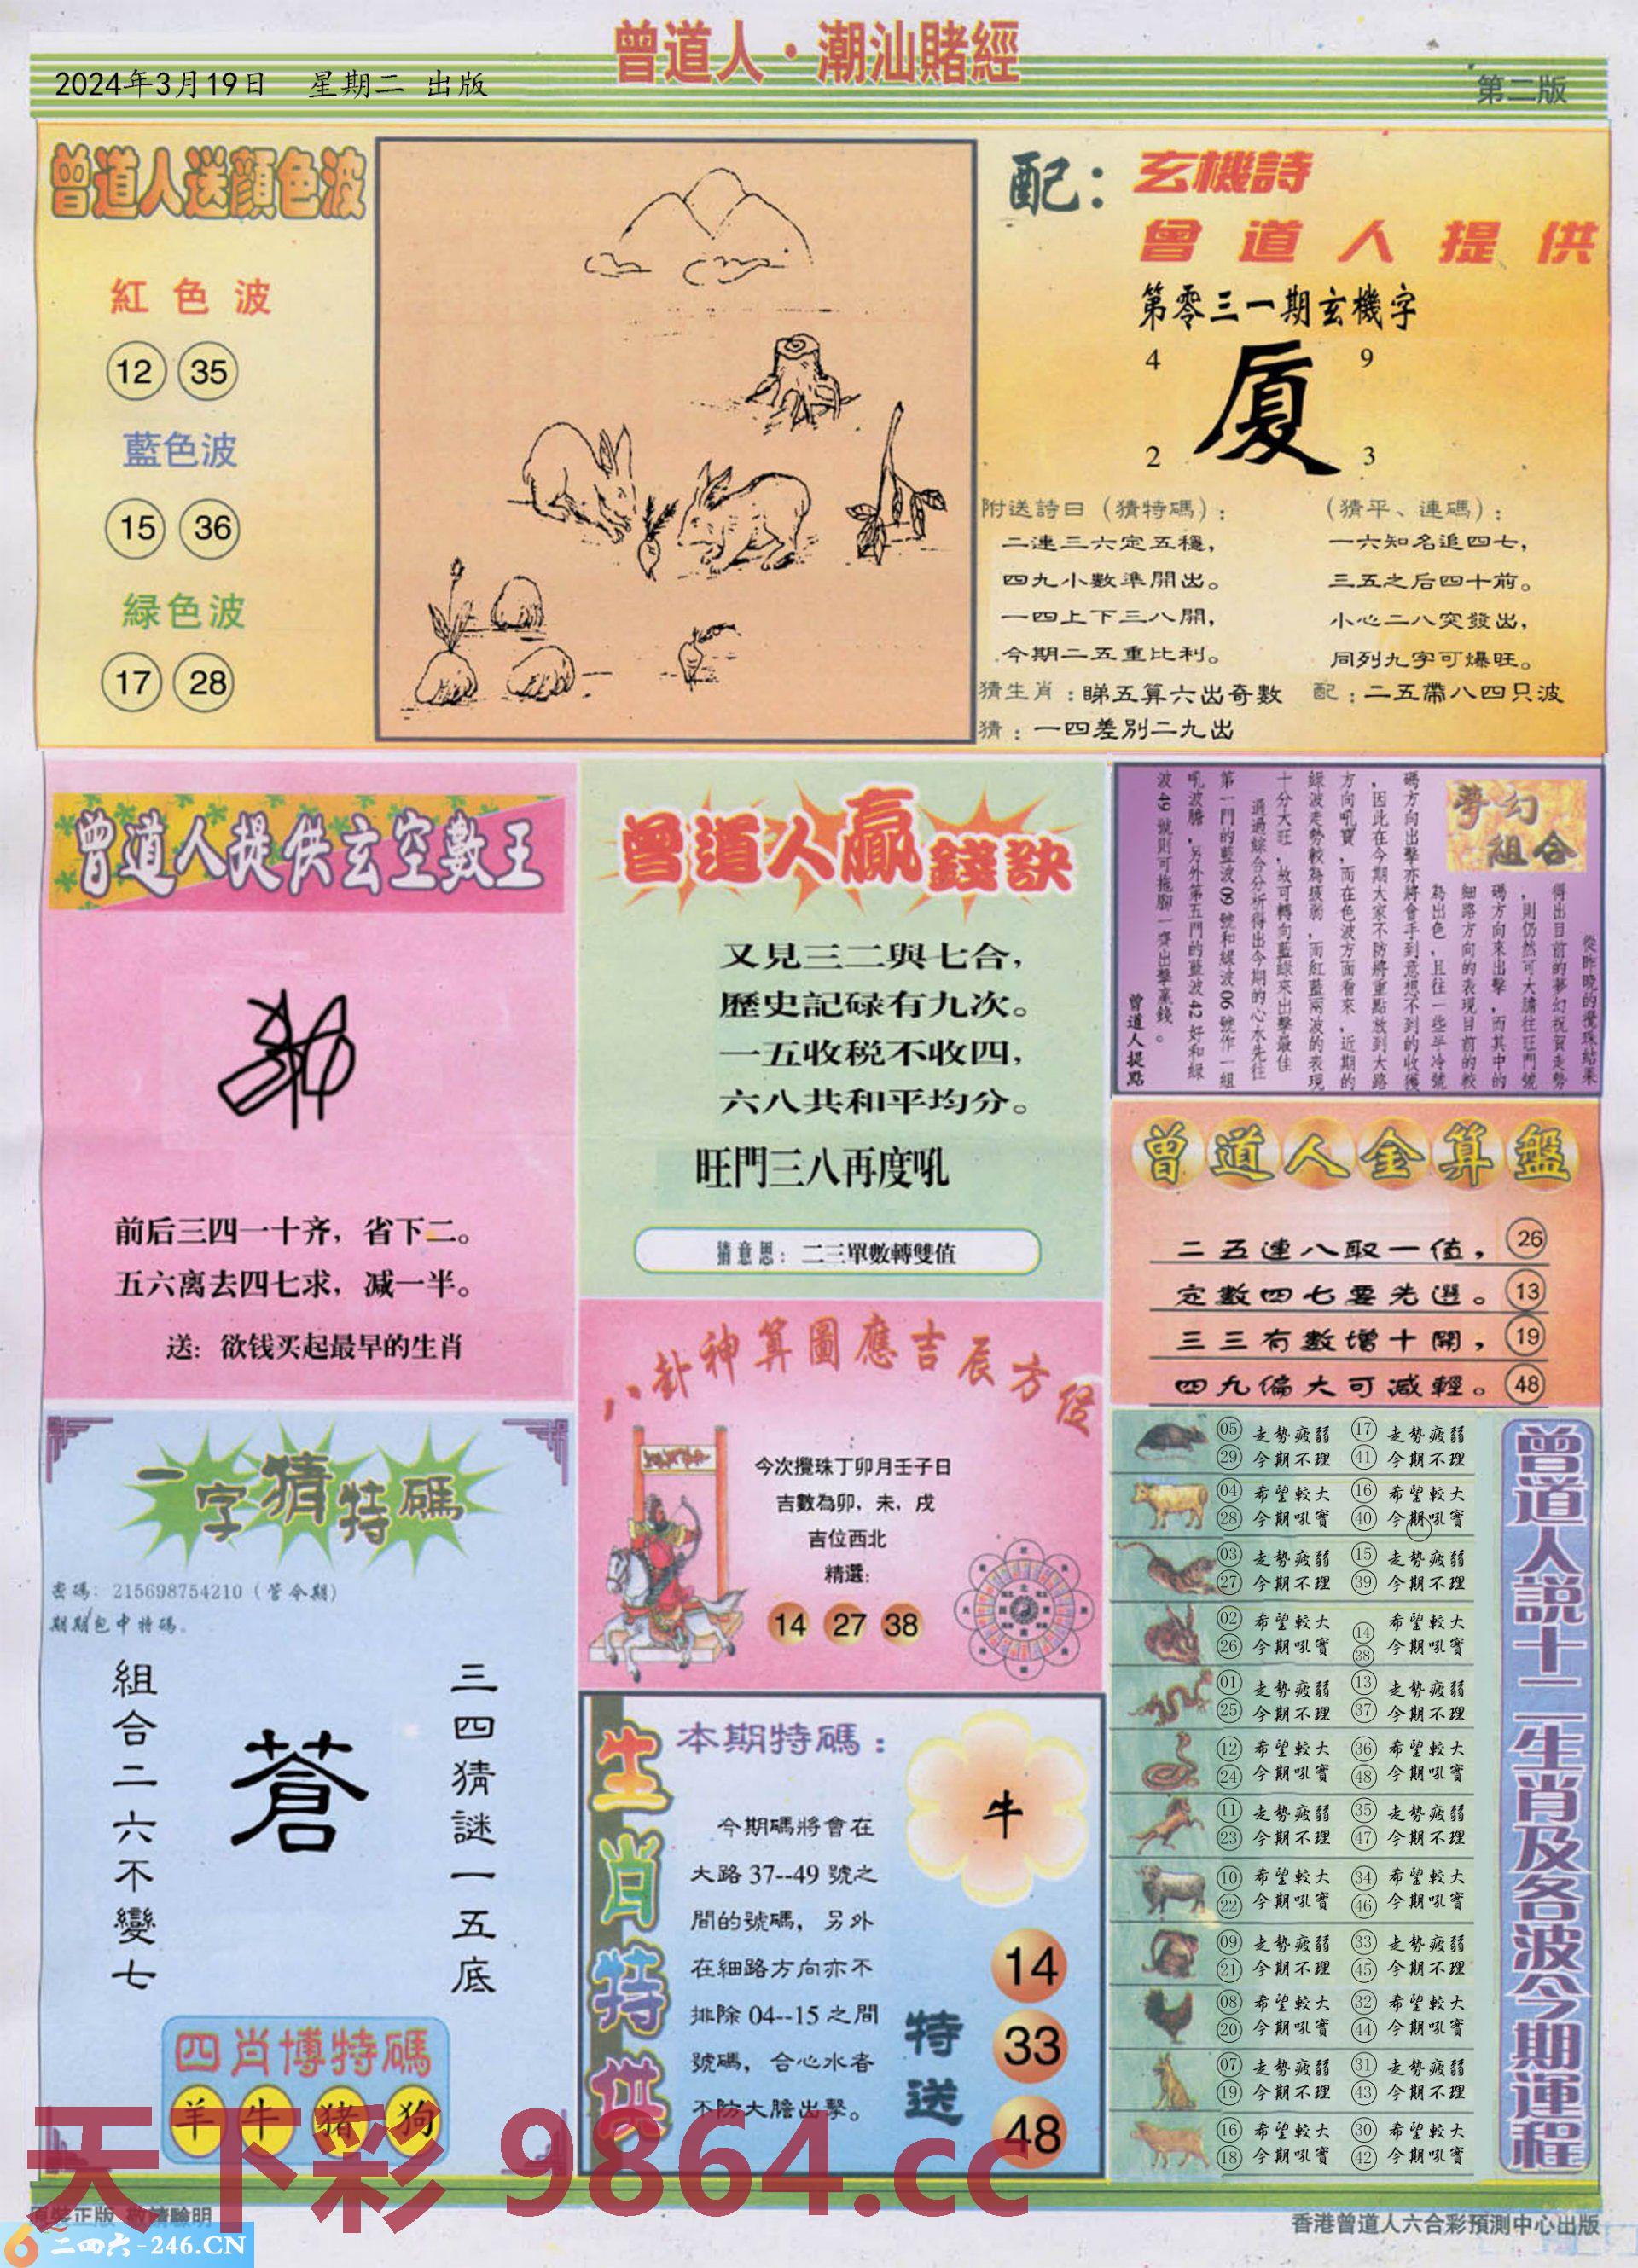 曾道人·潮汕賭經
2024年3月19日 星期二 出版
第二版
曾道人送顔色波
紅色波
12 35
藍色波
15 36
緑色波
17 28
配：玄機詩
曾道人提供
第零三一期玄機字
4 9
廈
2 3
附送詩曰（猜特碼）：
二連三六定五穩，
四九小數準開出。
一四上下三八開，
今期二五重比利。
（猜平、連碼）：
一六知名追四七，
三五之后四十前。
小心二八突發出，
同列九字可爆旺。
猜生肖：睇五算六出奇數
配：二五帶八四只波
猜：一四差別二九出
曾道人提供玄空數王
前后三四一十齐，省下二。
五六离去四七求，减一半。
送：欲钱买起最早的生肖
曾道人贏錢訣
又見三二與七合，
歷史記碌有九次。
一五收税不收四，
六八共和平均分。
旺門三八再度吼
猜意思：二三單數轉雙值
夢幻
組合
從昨晚的攪珠結果
得出目前的夢幻祝賀走勢
，則仍然可大膽往旺門號
碼方向來出擊，而其中的
細路方向的表現目前的較
為出色，且往一些半冷號
碼方向出擊亦將會手到意想不到的收獲
，因此在今期大家不防將重點放到大路
方向吼寶，而在色波方面看來，近期的
綠波走勢較為疲弱，而紅藍兩波的表現
十分大旺，故可轉向藍綠來出擊最佳
通過綜合分析得出今期的心水先往
第一門的藍波09號和綠波06號作一組
吼波膽，另外第五門的藍波42好和綠
波49號則可拖腳一齊出擊贏錢。
曾道人提點
曾道人金算盤
二五連八取一值，26
定數四七要先選。13
三三有數增十開，19
四九偏大可減輕。48
八卦神算圖應吉辰方位
今次攪珠丁卯月壬子日
吉數為卯，未，戌
吉位西北
精選：
14 27 38
一字猜特碼
密碼：215698754210（管今期）
期期包中特碼。
三四猜謎一五底
蒼
組合二六不變七
四肖博特碼
羊 牛 豬 狗
生肖特供
本期特碼：
牛
今期碼將會在
大路37--49號之
間的號碼，另外
在細路方向亦不
排除04--15之間
號碼，合心水者
不防大膽出擊。
特送
14
33
48
曾道人說十二生肖及各波今期運程
05 走勢疲弱 17 走勢疲弱
29 今期不理 41 今期不理
04 希望較大 16 希望較大
28 今期吼實 40 今期吼實
03 走勢疲弱 15 走勢疲弱
27 今期不理 39 今期不理
02 希望較大 14 希望較大
26 今期吼實 38 今期吼實
01 走勢疲弱 13 走勢疲弱
25 今期不理 37 今期不理
12 希望較大 36 希望較大
24 今期吼實 48 今期吼實
11 走勢疲弱 35 走勢疲弱
23 今期不理 47 今期不理
10 希望較大 34 希望較大
22 今期吼實 46 今期吼實
09 走勢疲弱 33 走勢疲弱
21 今期不理 45 今期不理
08 希望較大 32 希望較大
20 今期吼實 44 今期吼實
07 走勢疲弱 31 走勢疲弱
19 今期不理 43 今期不理
16 希望較大 30 希望較大
18 今期吼實 42 今期吼實
天下彩 9864.cc
原裝正版 敬請驗明
二四六-246.CN
香港曾道人六合彩預測中心出版